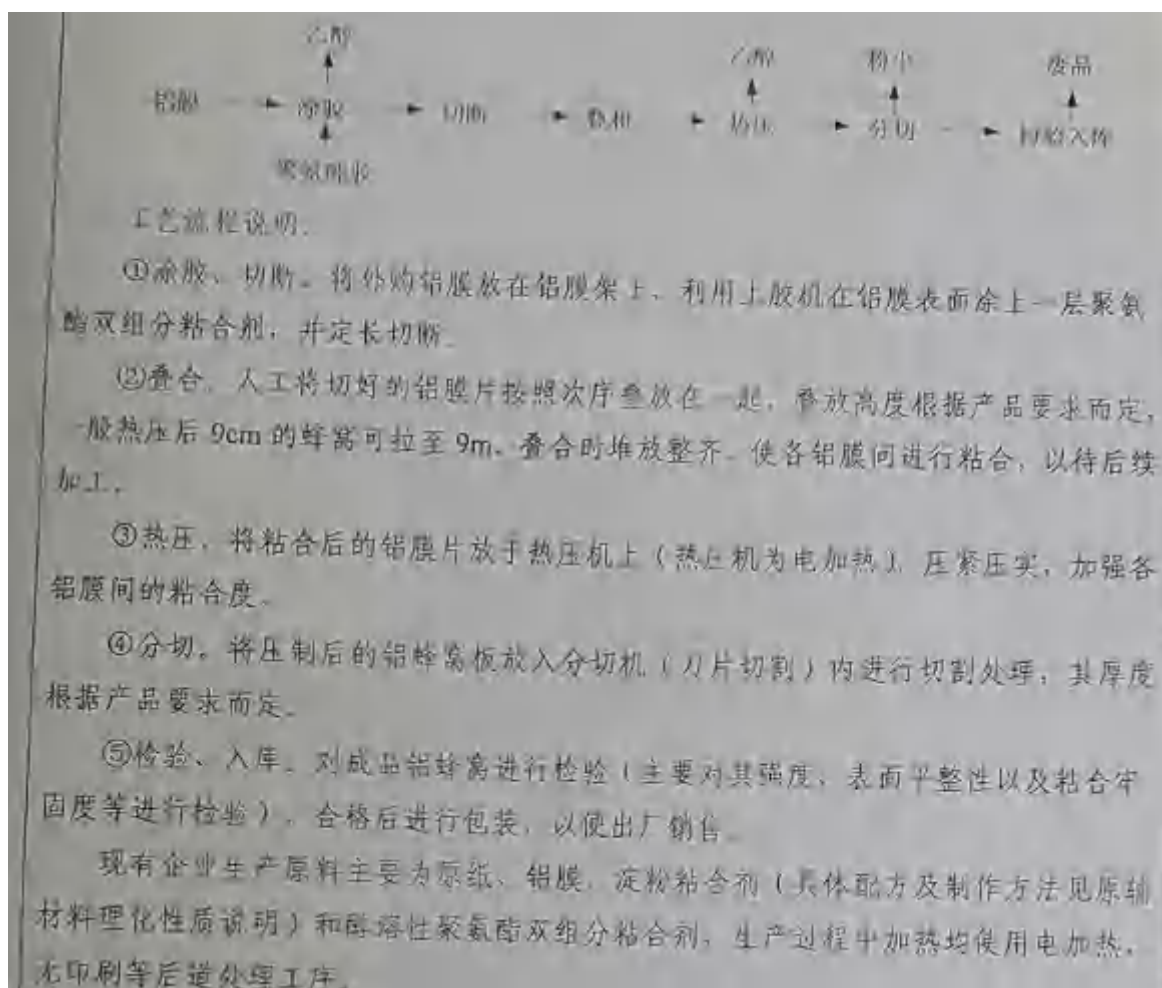 乙醇 乙醇 粉尘 废品
铝膜 涂胶 切断 叠和 热压 分切 检验入库
聚氨酯胶
工艺流程说明:
①涂胶、切断。将外购铝膜放在铝膜架上、利用上胶机在铝膜表面涂上一层聚氨
酯双组分粘合剂,并定长切断。
②叠合。人工将切好的铝膜片按照次序叠放在一起,叠放高度根据产品要求而定,
一般热压后9cm的蜂窝可拉至9m。叠合时堆放整齐。使各铝膜间进行粘合,以待后续
加工。
③热压。将粘合后的铝膜片放于热压机上(热压机为电加热)压紧压实,加强各
铝膜间的粘合度。
④分切。将压制后的铝蜂窝板放入分切机(刀片切割)内进行切割处理,其厚度
根据产品要求而定。
⑤检验、入库。对成品铝蜂窝进行检验(主要对其强度、表面平整性以及粘合牢
固度等进行检验)。合格后进行包装,以便出厂销售。
现有企业生产原料主要为原纸、铝膜、淀粉粘合剂(具体配方及制作方法见原辅
材料理化性质说明)和醇溶性聚氨酯双组分粘合剂,生产过程中加热均使用电加热,
无印刷等后道处理工序。